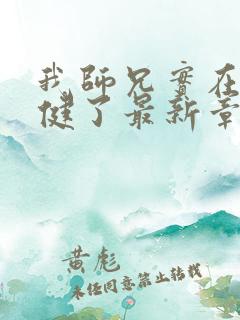 我師兄實在
健了最新章
黄彪
未经同意禁止转载